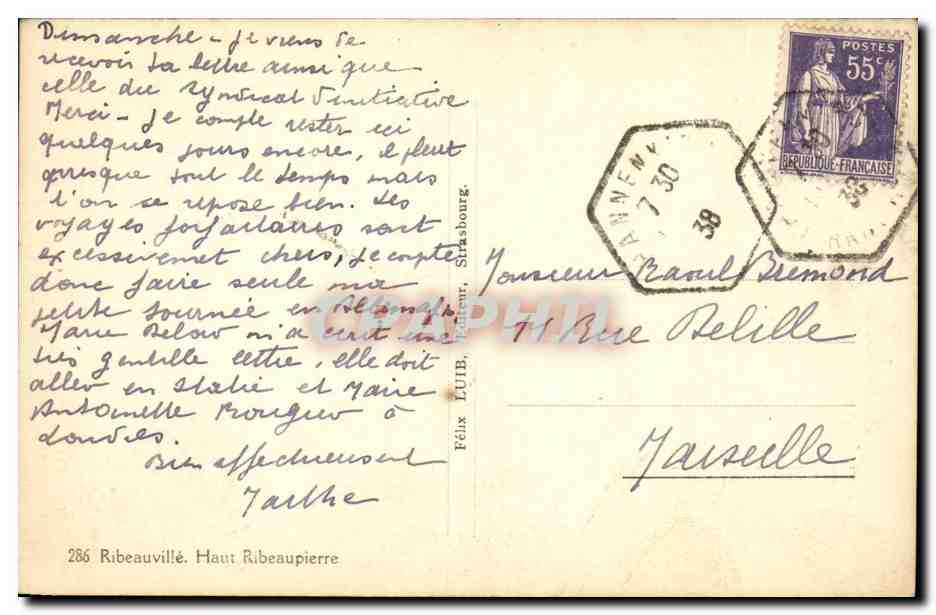 Dimanche - je viens de
recevoir ta lettre ainsi que
celle du Syndicat d'initiative
Merci - Je compte rester ici
quelques jours encore, il pleut
presque tout le temps mais
l'on se repose bien. Les
voyages forfaitaires sont
excessivement chers, je compte
donc faire seule ma
petite tournée en
Marie m'a écrit une
très gentille lettre, elle doit
aller en Italie et Marie
Antoinette à
Londres.
Bien affectueusement
Marthe
286 Ribeauvillé. Haut Ribeaupierre
Félix LUIB, Editeur, Strasbourg.
POSTES
55c
REPUBLIQUE-FRANÇAISE
7 30
38
Monsieur Raoul Bremond
71 Rue Belille
Marseille
CPAPHIL